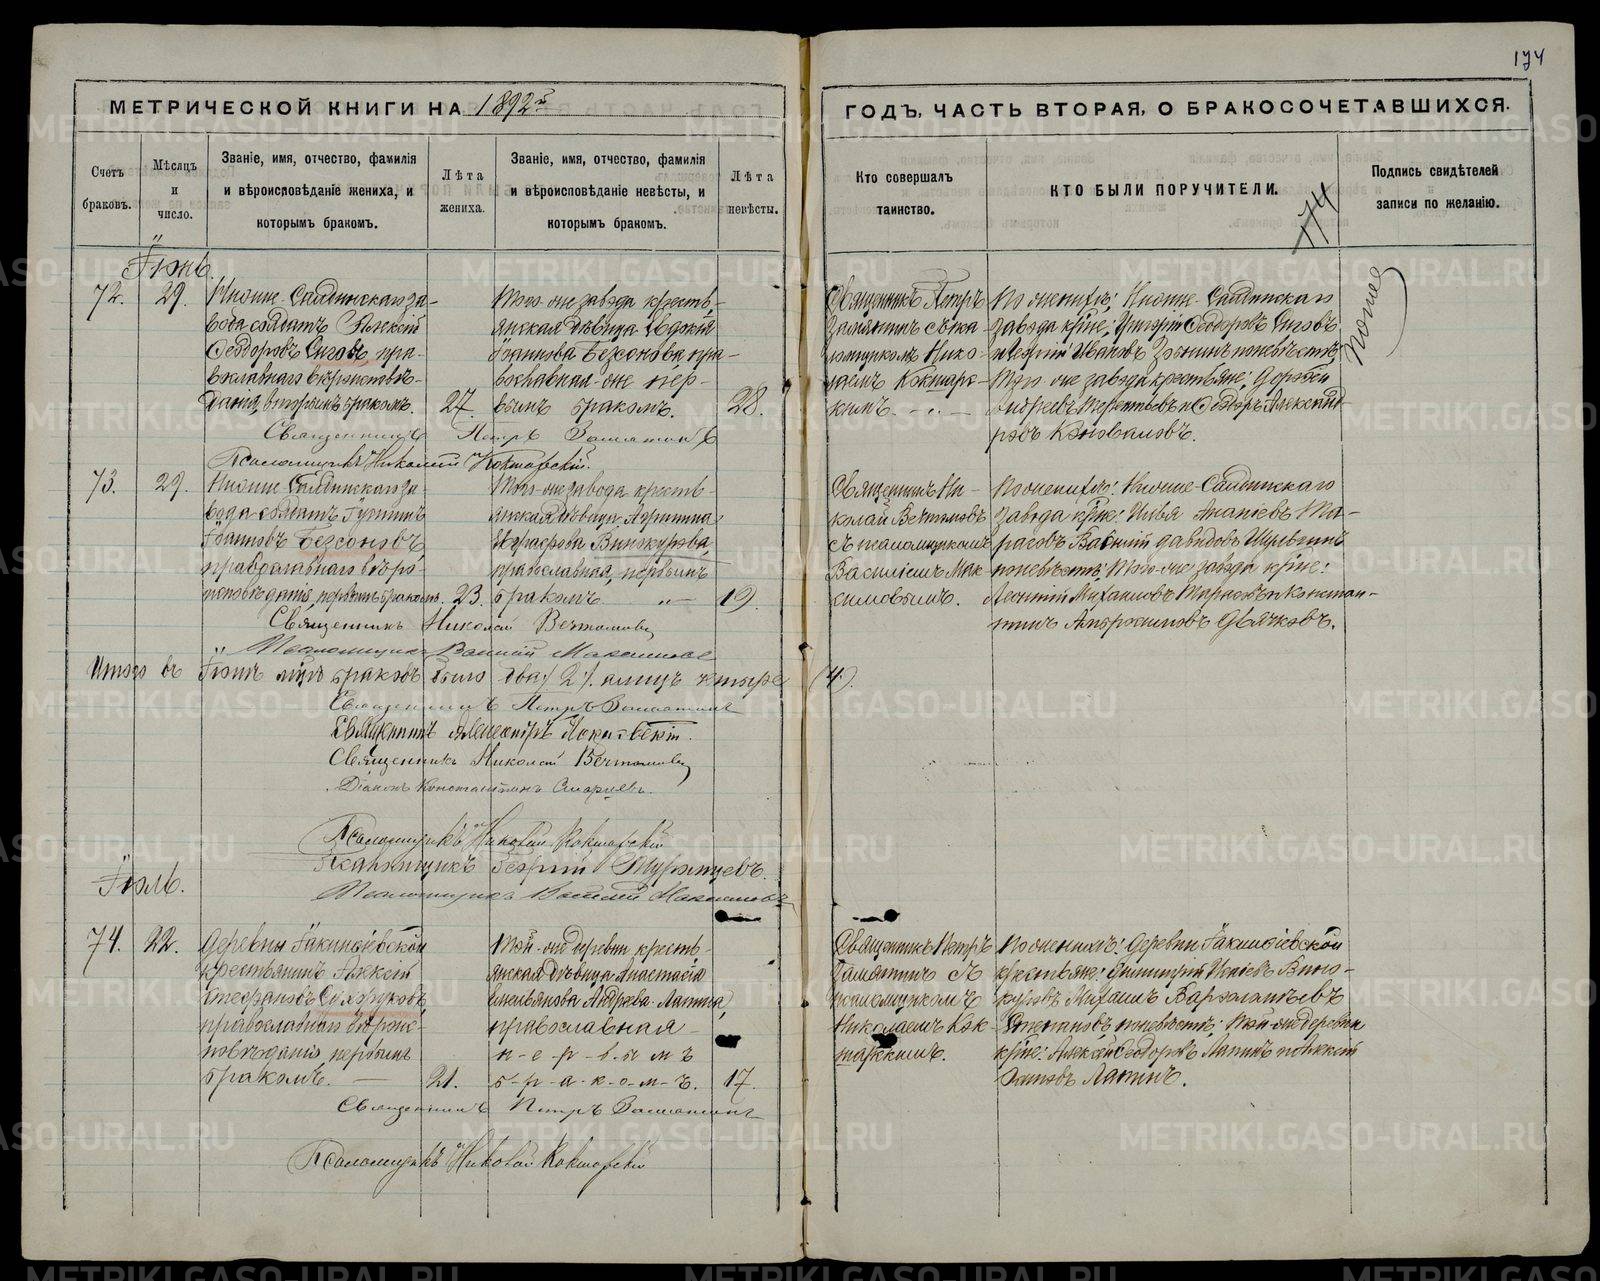 174
МЕТРИЧЕСКОЙ КНИГИ НА 1892й
ГОДЪ, ЧАСТЬ ВТОРАЯ, О БРАКОСОЧЕТАВШИХСЯ.
Счетъ браковъ.
Мѣсяцъ и число.
Званіе, имя, отчество, фамилія
и вѣроисповѣданіе жениха, и
которымъ бракомъ.
Лѣта
жениха.
Званіе, имя, отчество, фамилія
и вѣроисповѣданіе невѣсты, и
которымъ бракомъ.
Лѣта
невѣсты.
Кто совершалъ
таинство.
КТО БЫЛИ ПОРУЧИТЕЛИ.
174
Подпись свидѣтелей
записи по желанію.
Іюнь.
72.
29.
Нижне-Салдинскаго за-
вода солдатъ Алексій
Ѳеодоровъ Сиговъ, пра-
вославнаго вѣроисповѣ-
данія, вторымъ бракомъ.
27.
Того-же завода кресть-
янская дѣвица Евдокія
Іоаннова Безсонова, пра-
вославная-же пер-
вымъ бракомъ.
28.
Священникъ Петръ
Замятинъ съ пса-
ломщикомъ Нико-
лаемъ Кокшарс-
кимъ.
По женихѣ: Нижне-Салдинскаго
завода кр-не: Григорій Ѳеодоровъ Сиговъ
и Георгій Ивановъ Зосимъ по невѣстѣ:
Того-же завода крестьяне: Дороѳей
Андреевъ Терентьевъ и Ѳеодоръ Александ
ровъ Коноваловъ.
Священникъ Петръ Замятинъ
Псаломщикъ Николай Кокшарскій.
73.
29.
Нижне-Салдинскаго за-
вода солдатъ
Іоанновъ Безсоновъ,
православнаго вѣро-
исповѣданія, первымъ бракомъ.
23.
Того-же завода кресть-
янская дѣвица Агрипина
Винокурова,
православная, первымъ
бракомъ.
19.
Священникъ Ни-
колай Вечтомовъ
съ псаломщикомъ
Василіемъ Мак-
симовымъ.
По женихѣ: Нижне-Салдинскаго
завода кр-не: Илья Ананьевъ Та-
расовъ Василій Давидовъ
по невѣстѣ: Того-же завода кр-не:
Леонтій Михаиловъ Тарасовъ и Констан-
тинъ Дьячковъ.
Священникъ Николай Вечтомовъ
Псаломщикъ Василій Максимовъ
Итого въ Іюнѣ м-цѣ браковъ было два/2/. а лицъ четыре (4).
Священникъ Петръ Замятинъ
Священникъ Александръ
Священникъ Николай Вечтомовъ
Діаконъ Константинъ
Псаломщикъ Николай Кокшарскій
Псаломщикъ Георгій
Псаломщикъ Василій Максимовъ
Іюль.
74.
22.
Деревни
крестьянинъ Алексій
Стефановъ
православнаго вѣроис-
повѣданія, первымъ
бракомъ.
21.
Той-же деревни кресть-
янская дѣвица Анастасія
Емельянова Андреева-Лапина,
православная
п-е-р-в-ы-м-ъ
б-р-а-к-о-м-ъ.
17.
Священникъ Петръ
Замятинъ съ
псаломщикомъ
Николаемъ Кок-
шарскимъ.
По женихѣ: Деревни
крестьяне: Димитрій Вино-
куровъ Михаилъ Варѳоломѣевъ
Степановъ по невѣстѣ: Той-же деревни
кр-не: Алексѣй Ѳеодоровъ Лапинъ и Алексій
Лапинъ.
Священникъ Петръ Замятинъ
Псаломщикъ Николай Кокшарскій
METRIKI.GASO-URAL.RU